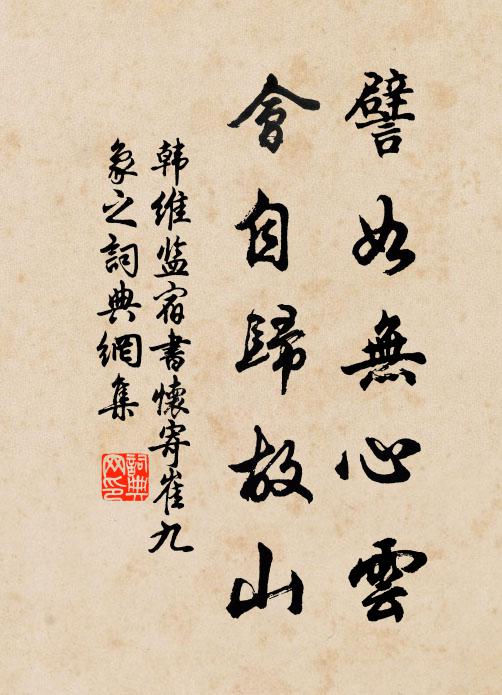 譬如無心雲
會自歸故山
韩维监宿書懷寄崔九
象之詞典網集
詞典网印